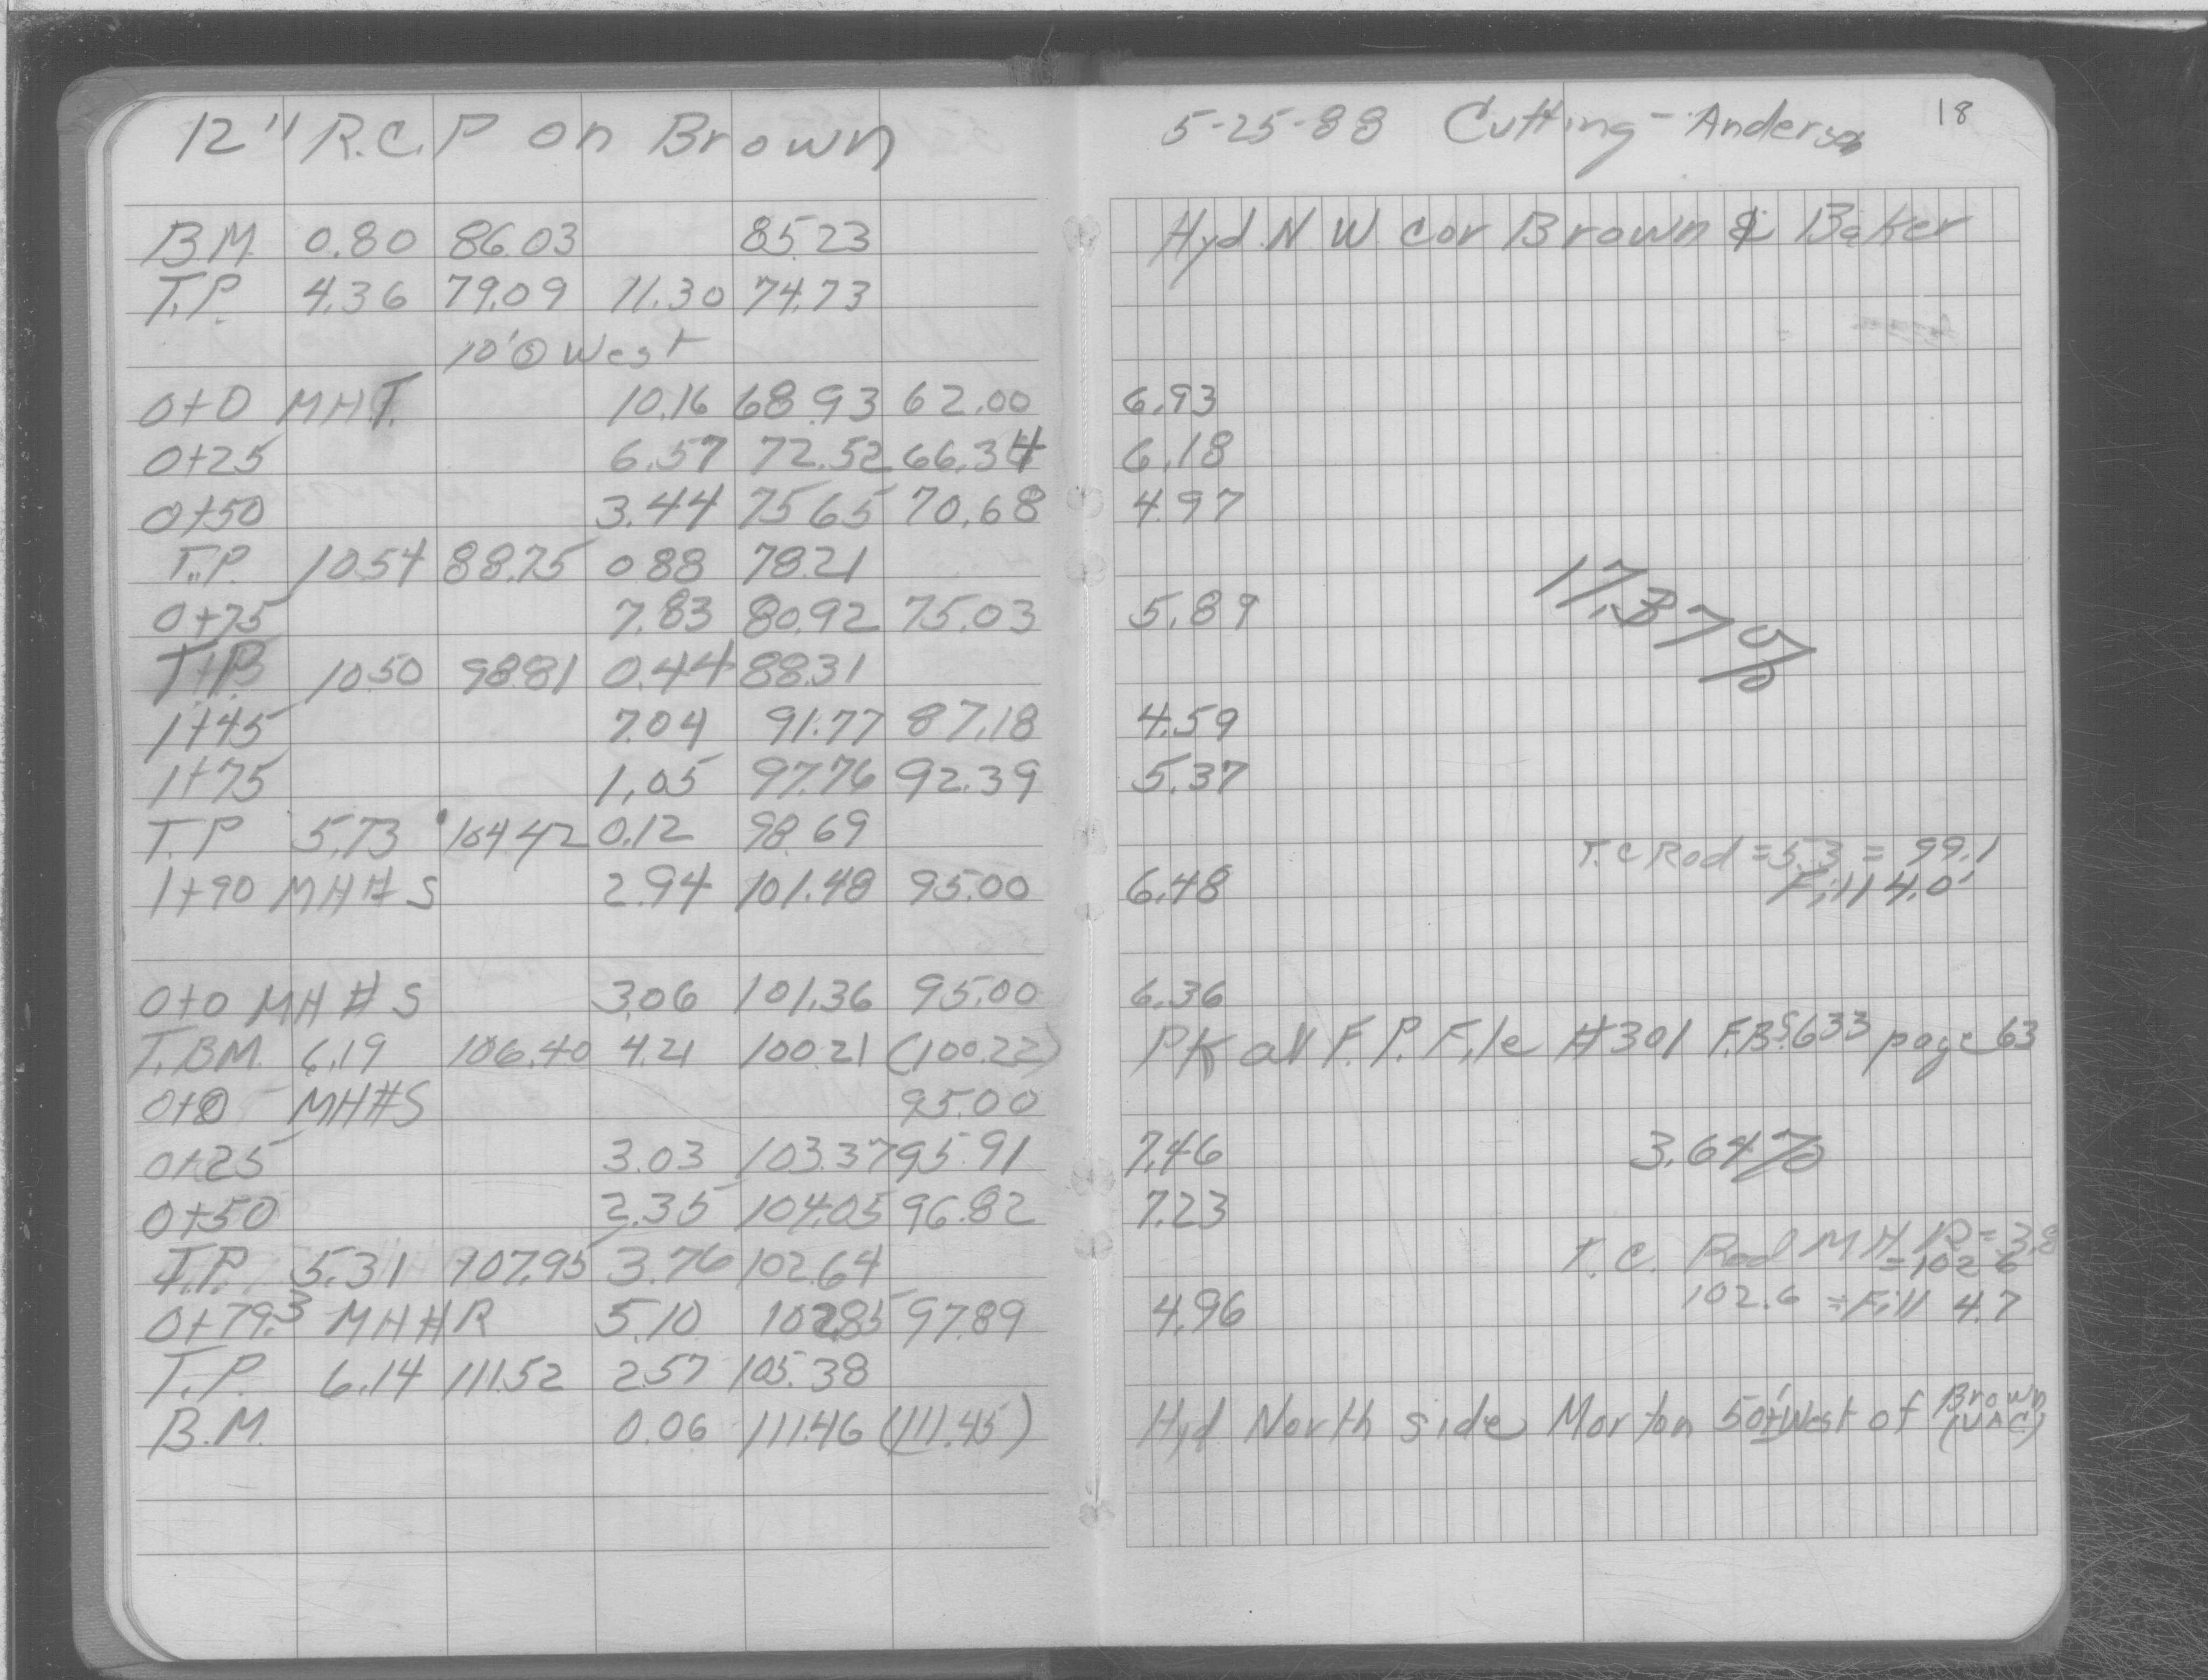 12" R.C.P on Brown
5-25-88 Cutting - Anderson 18
B.M. 0.80 86.03 85.23 Hyd. N W. cor Brown & Baker
T.P. 4.36 79.09 11.30 74.73
10' @ West
0+0 MH T. 10.16 68.93 62.00 6.93
0+25 6.57 72.52 66.34 6.18
0+50 3.44 75.65 70.68 4.97
T.P. 10.54 88.75 0.88 78.21
0+75 7.83 80.92 75.03 5.89 17.37%
T.P. 10.50 98.81 0.44 88.31
1+45 7.04 91.77 87.18 4.59
1+75 1.05 97.76 92.39 5.37
T.P 5.73 104.42 0.12 98.69 T.C Rod = 5.3 = 99.1
1+90 MH # S 2.94 101.48 95.00 6.48 Fill 4.0'
0+0 MH # S 3.06 101.36 95.00 6.36
T.BM. 6.19 106.40 4.21 100.21 (100.22) PK at F. P. File #301 F.B.S.633 page 63
0+0 MH#S 95.00
0+25 3.03 103.37 95.91 7.46 3.64%
0+50 2.35 104.05 96.82 7.23
T.P. 5.31 107.95 3.76 102.64 T.C. Rod MH R = 3.8 = 102.6
0+79.3 MH#R 5.10 102.85 97.89 4.96 102.6 = Fill 4.7
T.P. 6.14 111.52 2.57 105.38
B.M. 0.06 111.46 (111.45) Hyd North side Morton 50'± West of Brown (VAC)